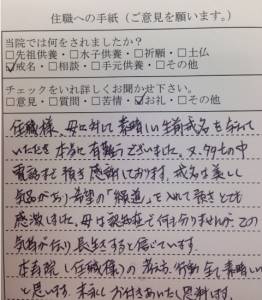 住職への手紙(ご意見を願います。)
当院では何をされましたか?
□先祖供養・□水子供養・□祈願・□土仏
☑戒名・□相談・□手元供養・□その他
チェックをいれ詳しくお聞かせ下さい。
□意見・□質問・□苦情・☑お礼・□その他
住職様、母に対して素晴しい生前戒名を
いただき本当に有難うございました。又、の中
電話まで頂き感謝しております。戒名は美しく
気品があり希望の「」を入れて頂きとても
感激しました。母は認知症で何も分りませんが、この
気持が伝り長生きすると信じています。
本寿院(住職様)の考え方、行動全て素晴しい
と思います。末永くお付きあいたく思います。